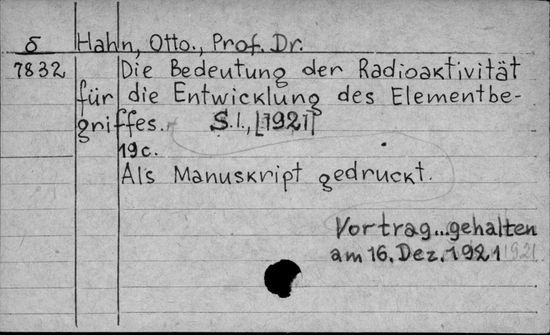 δ Hahn, Otto., Prof. Dr.
7832 Die Bedeutung der Radioaktivität
für die Entwicklung des Elementbe-
griffes. S.l., [1921]
19c.
Als Manuskript gedruckt.
Vortrag...gehalten
am 16. Dez. 1921 1921